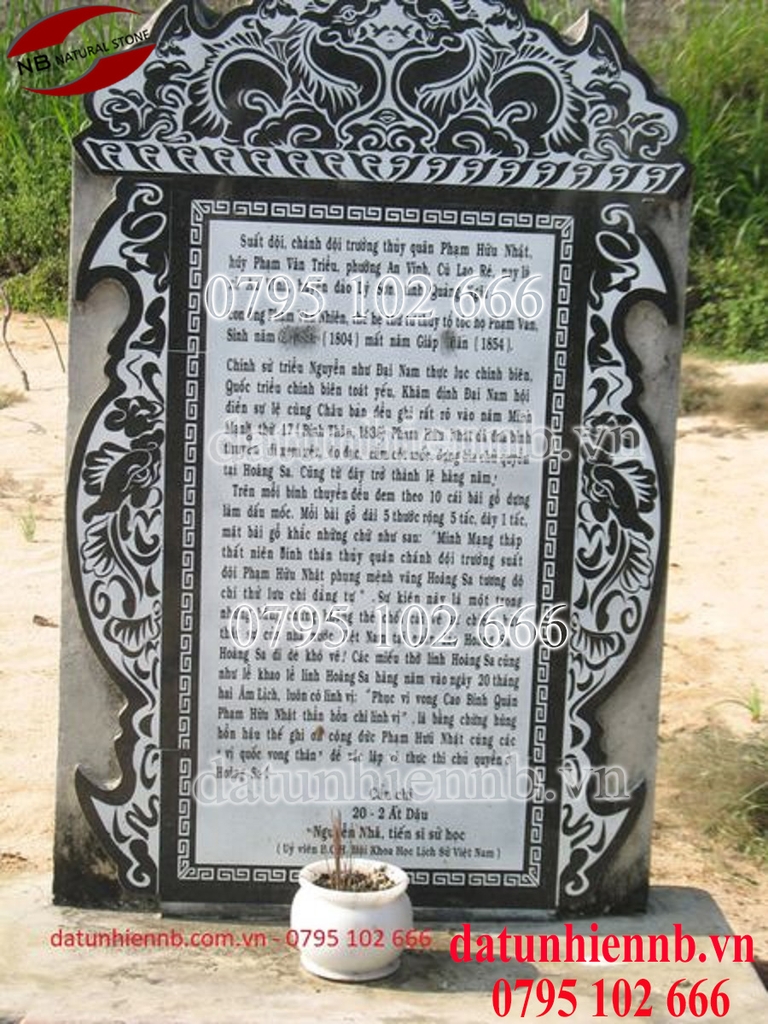 NB NATURAL STONE
Suất đội, chánh đội trưởng thủy quân Phạm Hữu Nhật,
húy Phạm Văn Triều, phường An Vĩnh, Cù Lao Ré, nay là
đảo Lý Sơn tỉnh Quảng
0795 102 666
con ông Phạm Nhiên, thế hệ thứ tư thủy tổ tộc họ Phạm Văn,
Sinh năm (1804) mất năm Giáp (1854).
Chính sử triều Nguyễn như Đại Nam thực lục chính biên,
Quốc triều chính biên toát yếu, Khâm định Đại Nam hội
điển sự lệ cùng Châu bản đều ghi rất rõ vào năm Minh
Mạng thứ 17 (Bính Thân, 1836) Phạm Hữu Nhật đã đưa binh
datunhiennb.vn
thuyền đi xem xét, đo đạc, cắm cột mốc, dựng bia chủ quyền
tại Hoàng Sa. Cũng từ đây trở thành lệ hàng năm.
Trên mỗi binh thuyền đều đem theo 10 cái bài gỗ dựng
làm dấu mốc. Mỗi bài gỗ dài 5 thước rộng 5 tấc, dày 1 tấc,
mặt bài gỗ khắc những chữ như sau: "Minh Mang thập
thất niên Bính thân thủy quân chánh đội trưởng suất
đội Phạm Hữu Nhật phụng mệnh vãng Hoàng Sa tương độ
chí thử lưu chí đảng tự". Sự kiện này là một trong
những bằng chứng không thể chối cãi về chủ
0795 102 666
Nam
Hoàng Sa đi dễ khó về! Các miếu thờ lính Hoàng Sa cũng
như lễ khao lề lính Hoàng Sa hàng năm vào ngày 20 tháng
hai Âm Lịch, luôn có linh vị: "Phục vị vong Cao Bình Quận
Phạm Hữu Nhật thần hồn chi linh vị", là bằng chứng hùng
hồn hậu thế ghi ơn công đức Phạm Hữu Nhật cùng các
"vị quốc vong thân" để xác lập và thực thi chủ quyền ở
Hoàng Sa.
datunhiennb.vn
Cẩn chí
20 - 2 Ất Dậu
Nguyễn Nhã, tiến sĩ sử học
(Uỷ viên B.C.H. Hội Khoa Học Lịch Sử Việt Nam)
datunhiennb.com.vn - 0795 102 666
datunhiennb.vn
0795 102 666